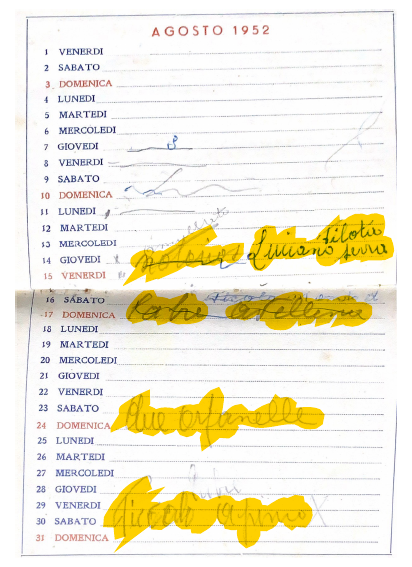 AGOSTO 1952
1 VENERDI
2 SABATO
3 DOMENICA
4 LUNEDI
5 MARTEDI
6 MERCOLEDI
7 GIOVEDI
8 VENERDI
9 SABATO
10 DOMENICA
11 LUNEDI
12 MARTEDI
13 MERCOLEDI
14 GIOVEDI Luciano Serra Pilota
15 VENERDI
16 SABATO
17 DOMENICA
18 LUNEDI
19 MARTEDI
20 MERCOLEDI
21 GIOVEDI
22 VENERDI
23 SABATO
24 DOMENICA Due orfanelle
25 LUNEDI
26 MARTEDI
27 MERCOLEDI
28 GIOVEDI
29 VENERDI
30 SABATO Piccolo alpino
31 DOMENICA